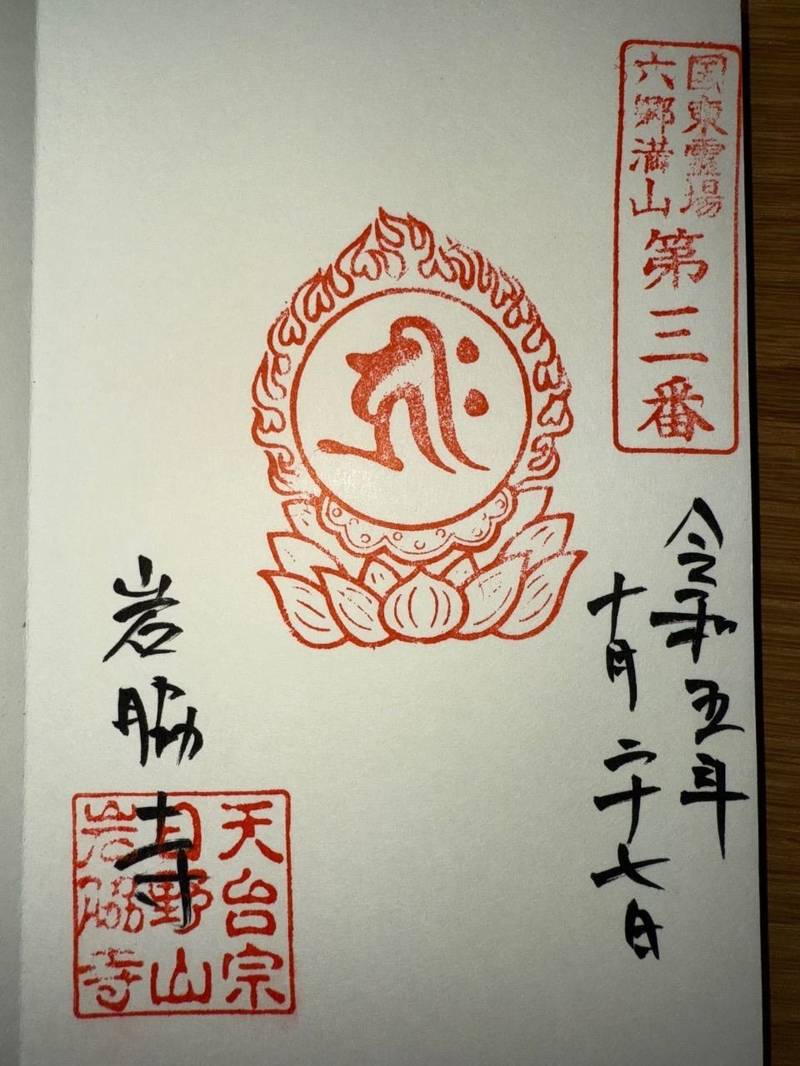 国東霊場
六郷満山
第三番
令和五年
十月二十七日
岩脇寺
天台宗
日野山
岩脇寺